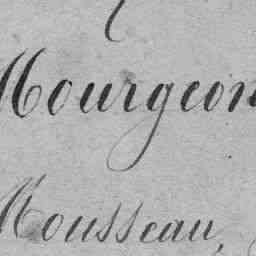 Mourgeon
Mousseau,